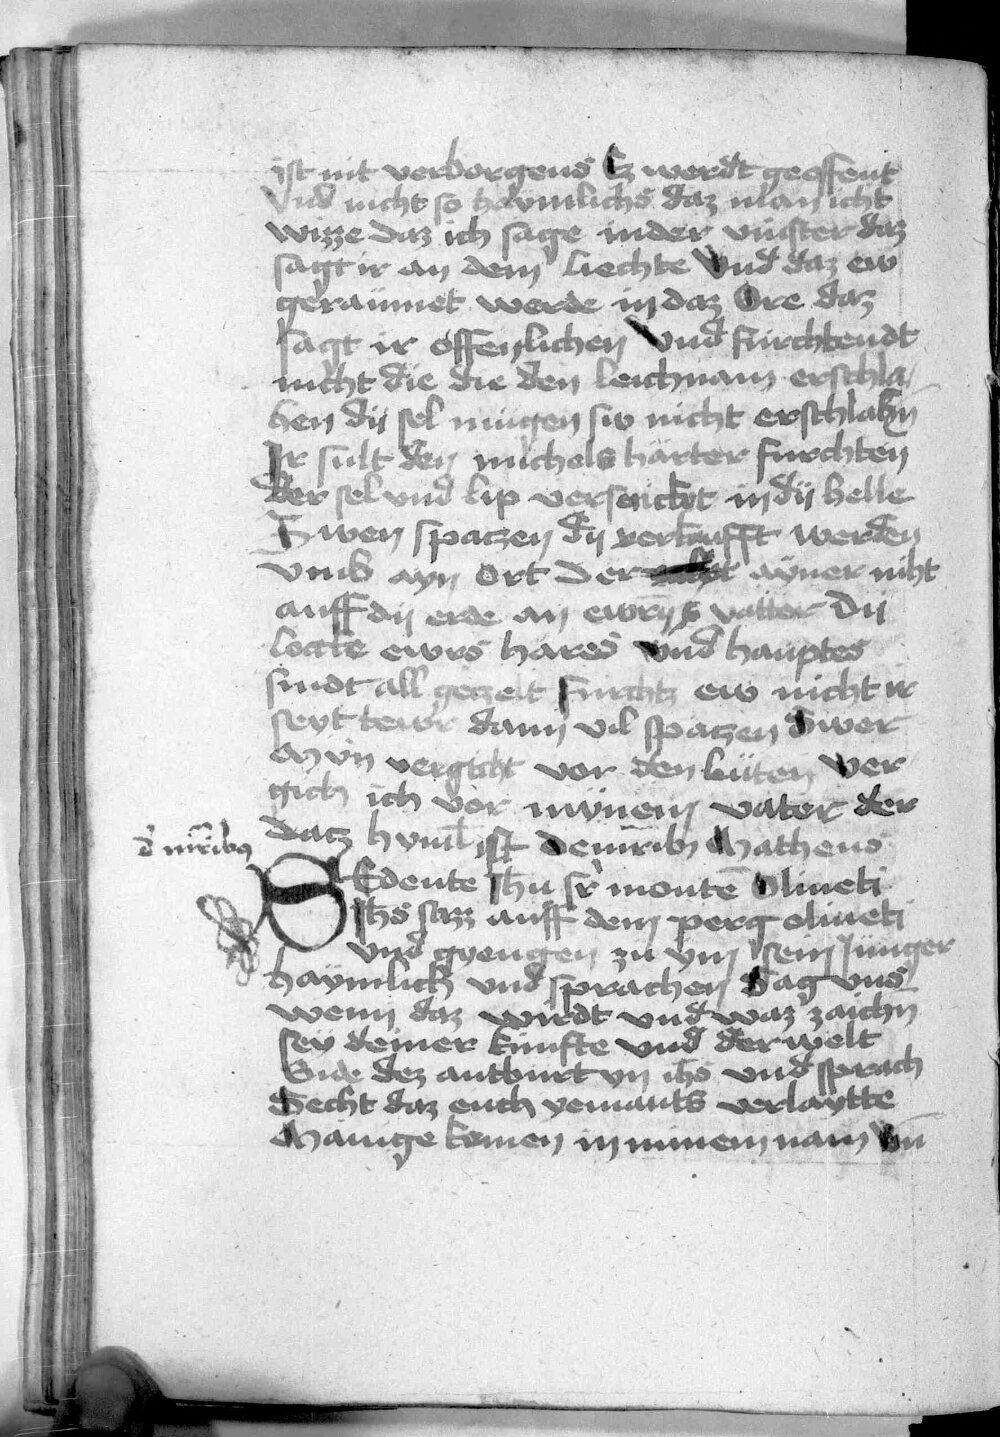 ist nit verborgens Ez werdt geoffent
Vnd nicht so haymlichs daz man icht
wizze daz ich sage inder vinster daz
sagt ir an dem liechte Vnd daz ew
gerawnet werde in daz Ore daz
sagt ir offenlichen Vnd furchtendt
nicht die die den leichnam erschla
hen dij sel mugen siv nicht erschlahn
Ir sult den michels härter furchten
Der sel vnd lip versencket in dij helle
Swen spaczen dij verkaufft werden
vmb ayn Ort Der ayner niht
auff dij erde an ewrn vatter Dij
locke ewrs hares vnd hauptes
sindt all geczelt Furchtz ew nicht ir
seyt tewr dann vil spaczen Swer
Myn vergicht vor den lüten Ver
gich ich vor mynem vater der
datz hyml ist De mrib Matheus
d mribus
SEdente Ihu sr monte Oliueti
Ihs sazz auff dem perg oliueti
vnd gyengen zu ym sein Junger
haymlich vnd sprachen Sag vns
wenn daz wirdt vnd waz zaichn
sey deiner kunfte vnd der welt
Ende dez antburt yn ihs vnd sprach
Secht daz euch yemants verlaytte
Mainige komen in minem nam Vn